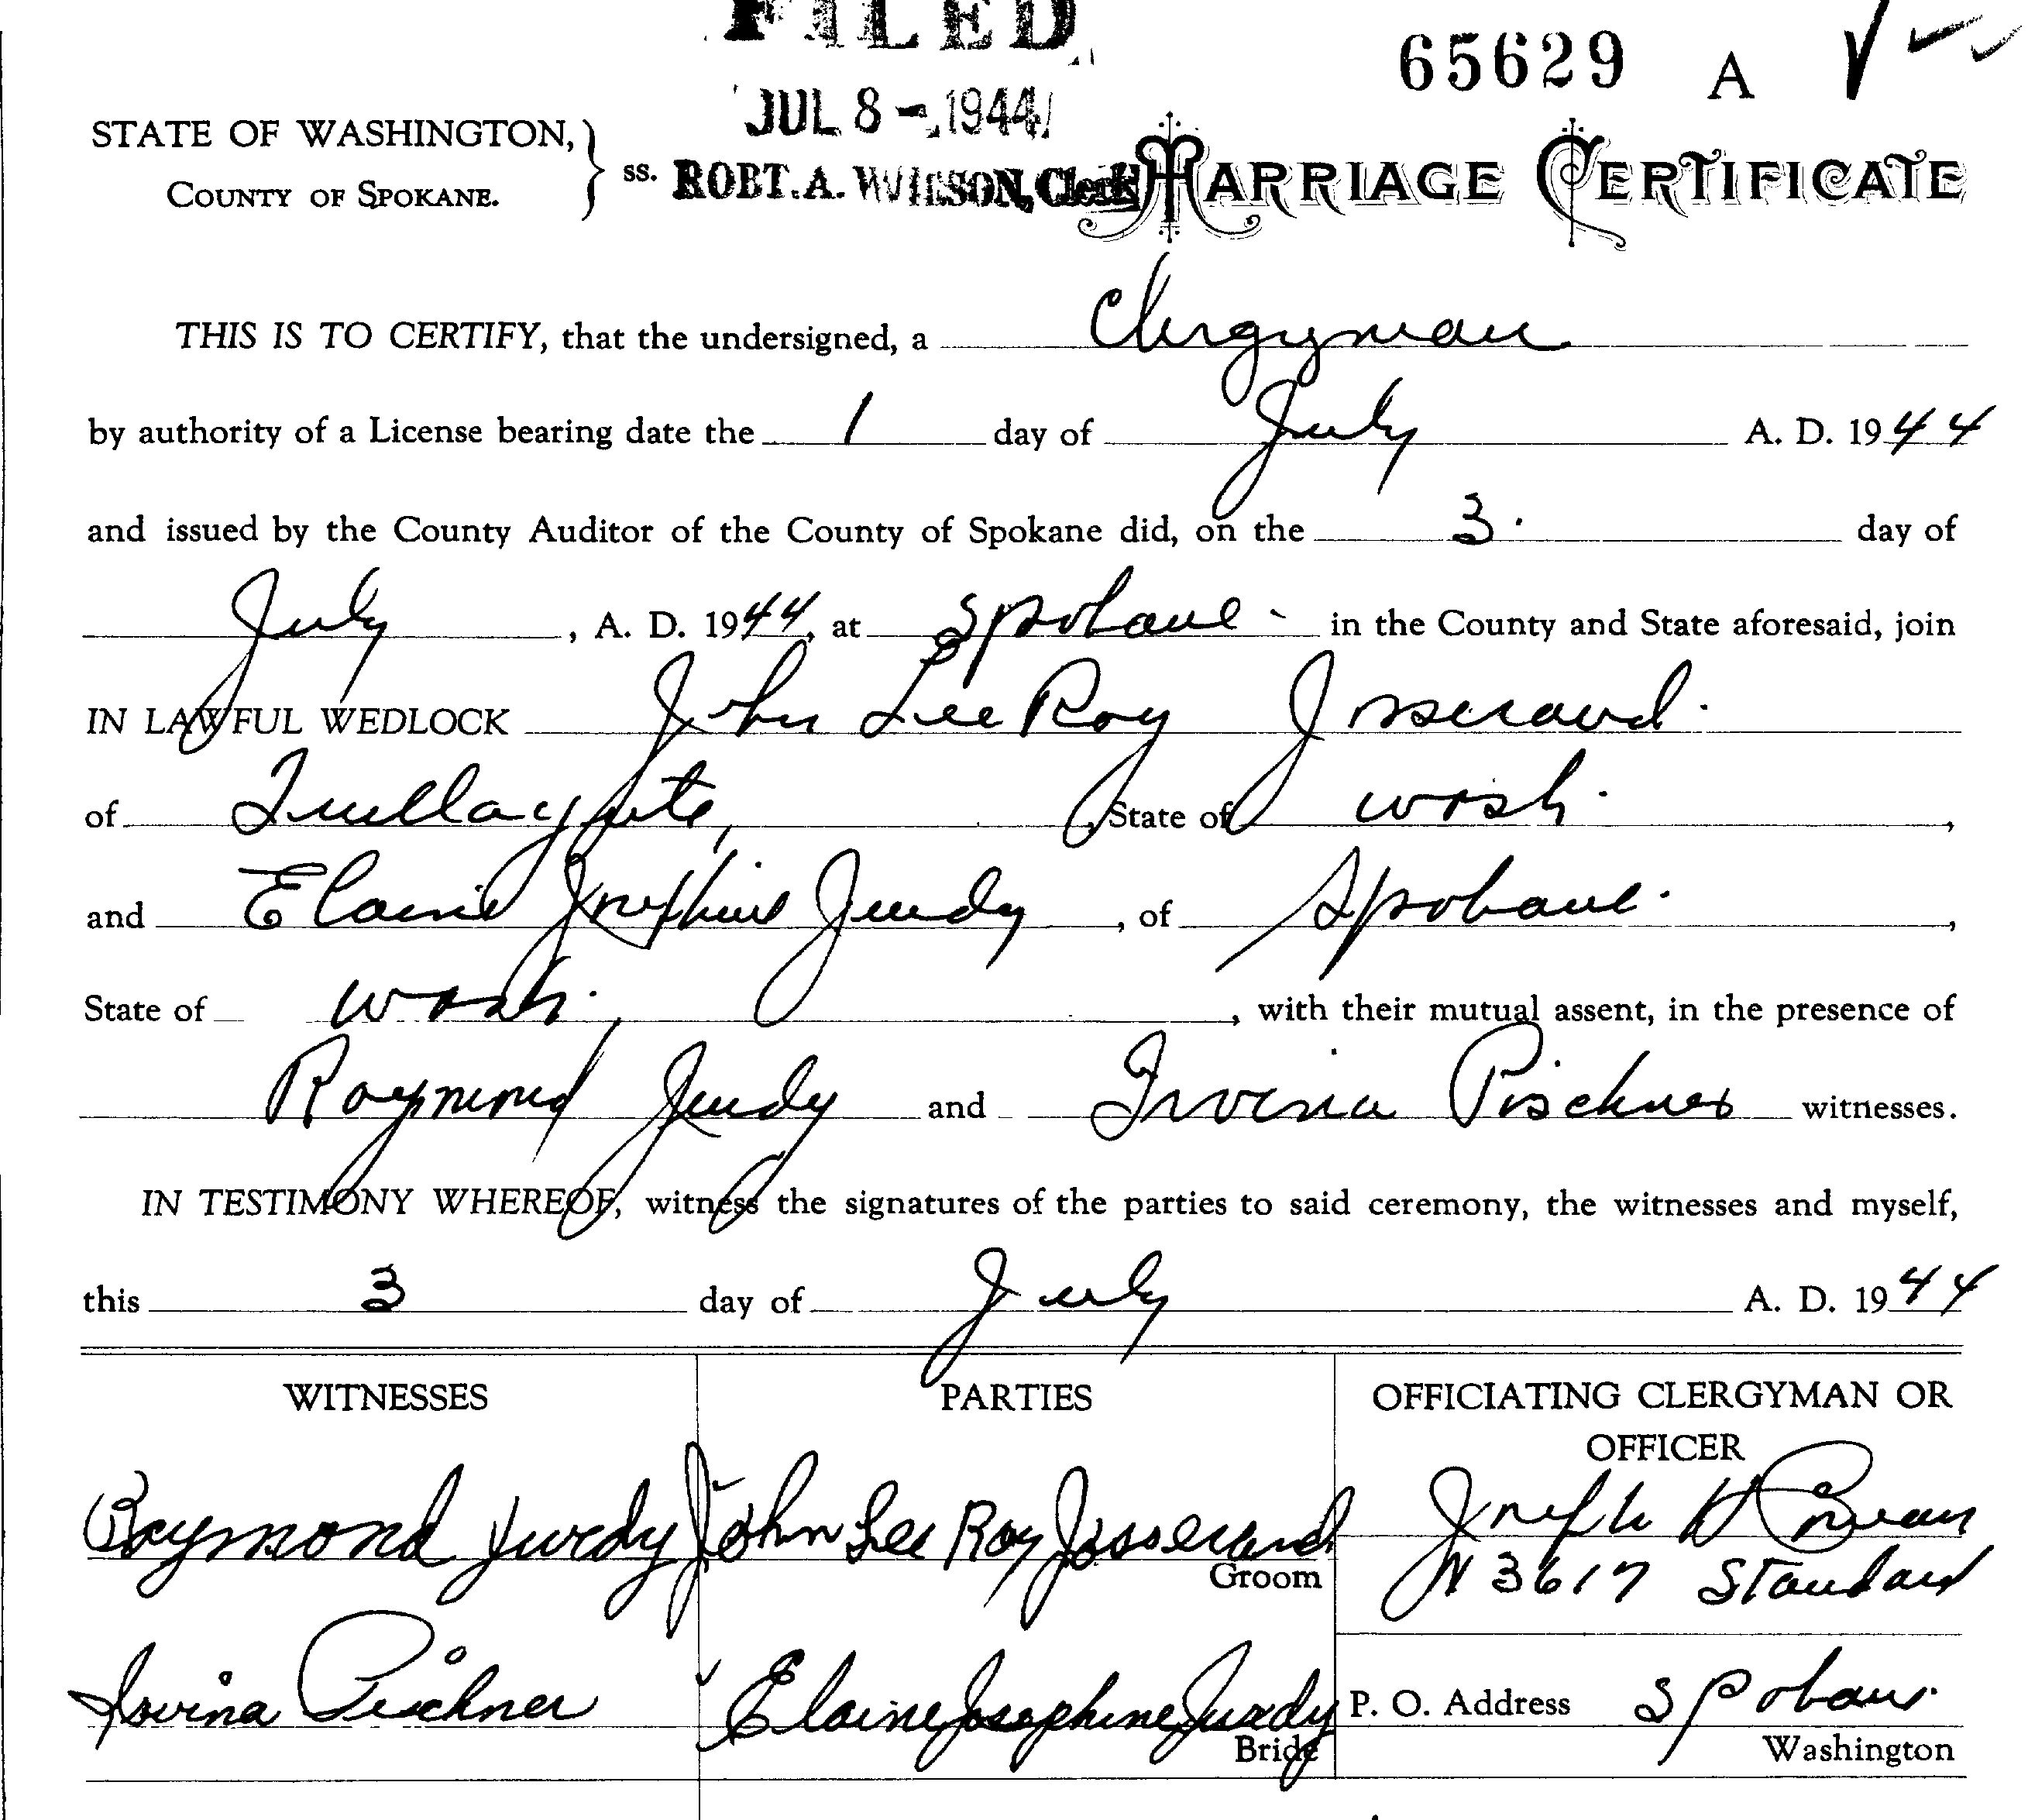 FILED
65629 A
JUL 8 - 1944
STATE OF WASHINGTON,
COUNTY OF SPOKANE.
ss. ROBT. A. WILSON, Clerk
MARRIAGE CERTIFICATE
THIS IS TO CERTIFY, that the undersigned, a Clergyman
by authority of a License bearing date the 1 day of July A. D. 1944
and issued by the County Auditor of the County of Spokane did, on the 3. day of
July, A. D. 1944, at Spokane - in the County and State aforesaid, join
IN LAWFUL WEDLOCK John Lee Roy Josserand.
of , State of Wash.,
and Elaine Josephine Jurdy, of Spokane.,
State of Wash., with their mutual assent, in the presence of
Raymond Jurdy and Irvina Pischner witnesses.
IN TESTIMONY WHEREOF, witness the signatures of the parties to said ceremony, the witnesses and myself,
this 3 day of July A. D. 1944
WITNESSES
PARTIES
OFFICIATING CLERGYMAN OR
OFFICER
Raymond Jurdy
John Lee Roy Josserand
Groom
Joseph
N 3617 Standard
Irvina Pischner
Elaine Josephine Jurdy
Bride
P. O. Address Spokane.
Washington